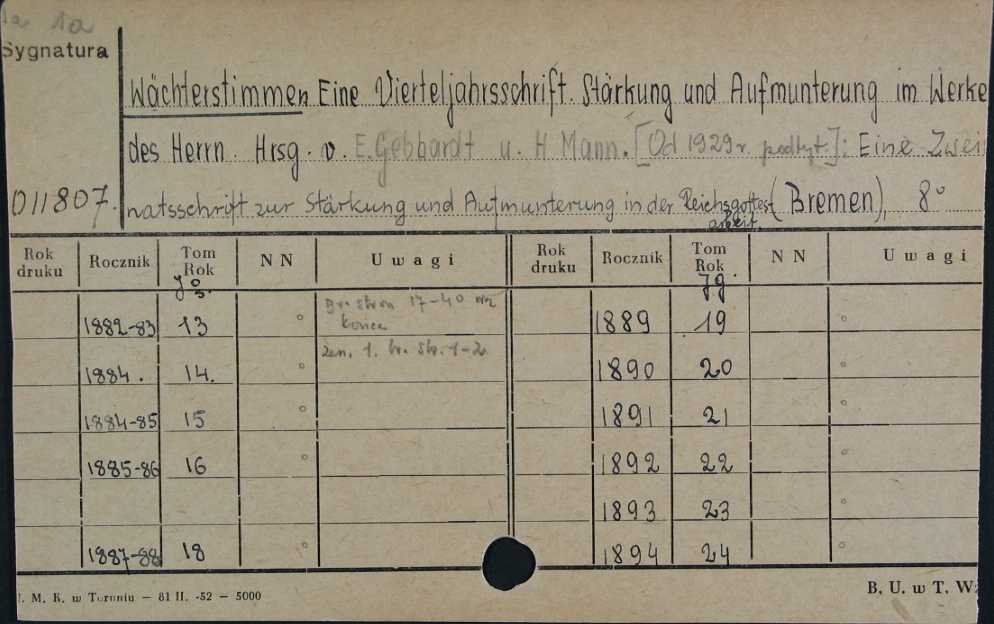 1a 1a
Sygnatura
Wächterstimmen Eine Vierteljahrsschrift. Stärkung und Aufmunterung im Werke
des Herrn. Hrsg. v. E. Gebhardt u. H Mann. [Od 1929 r. podtyt.]: Eine Zwei
011807. natsschrift zur Stärkung und Aufmunterung in der Reichsgottes (Bremen), 8°
arbeit.
Rok druku Rocznik Tom Rok NN Uwagi Rok druku Rocznik Tom Rok NN Uwagi
Jg.
1882-83 13 ° Br. stron 17-40 1889 19 °
końca
1884. 14. ° 1. br. str. 1-2 1890 20 °
1884-85 15 ° 1891 21 °
1885-86 16 ° 1892 22 °
1893 23 °
1887-88 18 ° 1894 24 °
M. K. w Toruniu — 81 II. -52 — 5000 B. U. w T. W